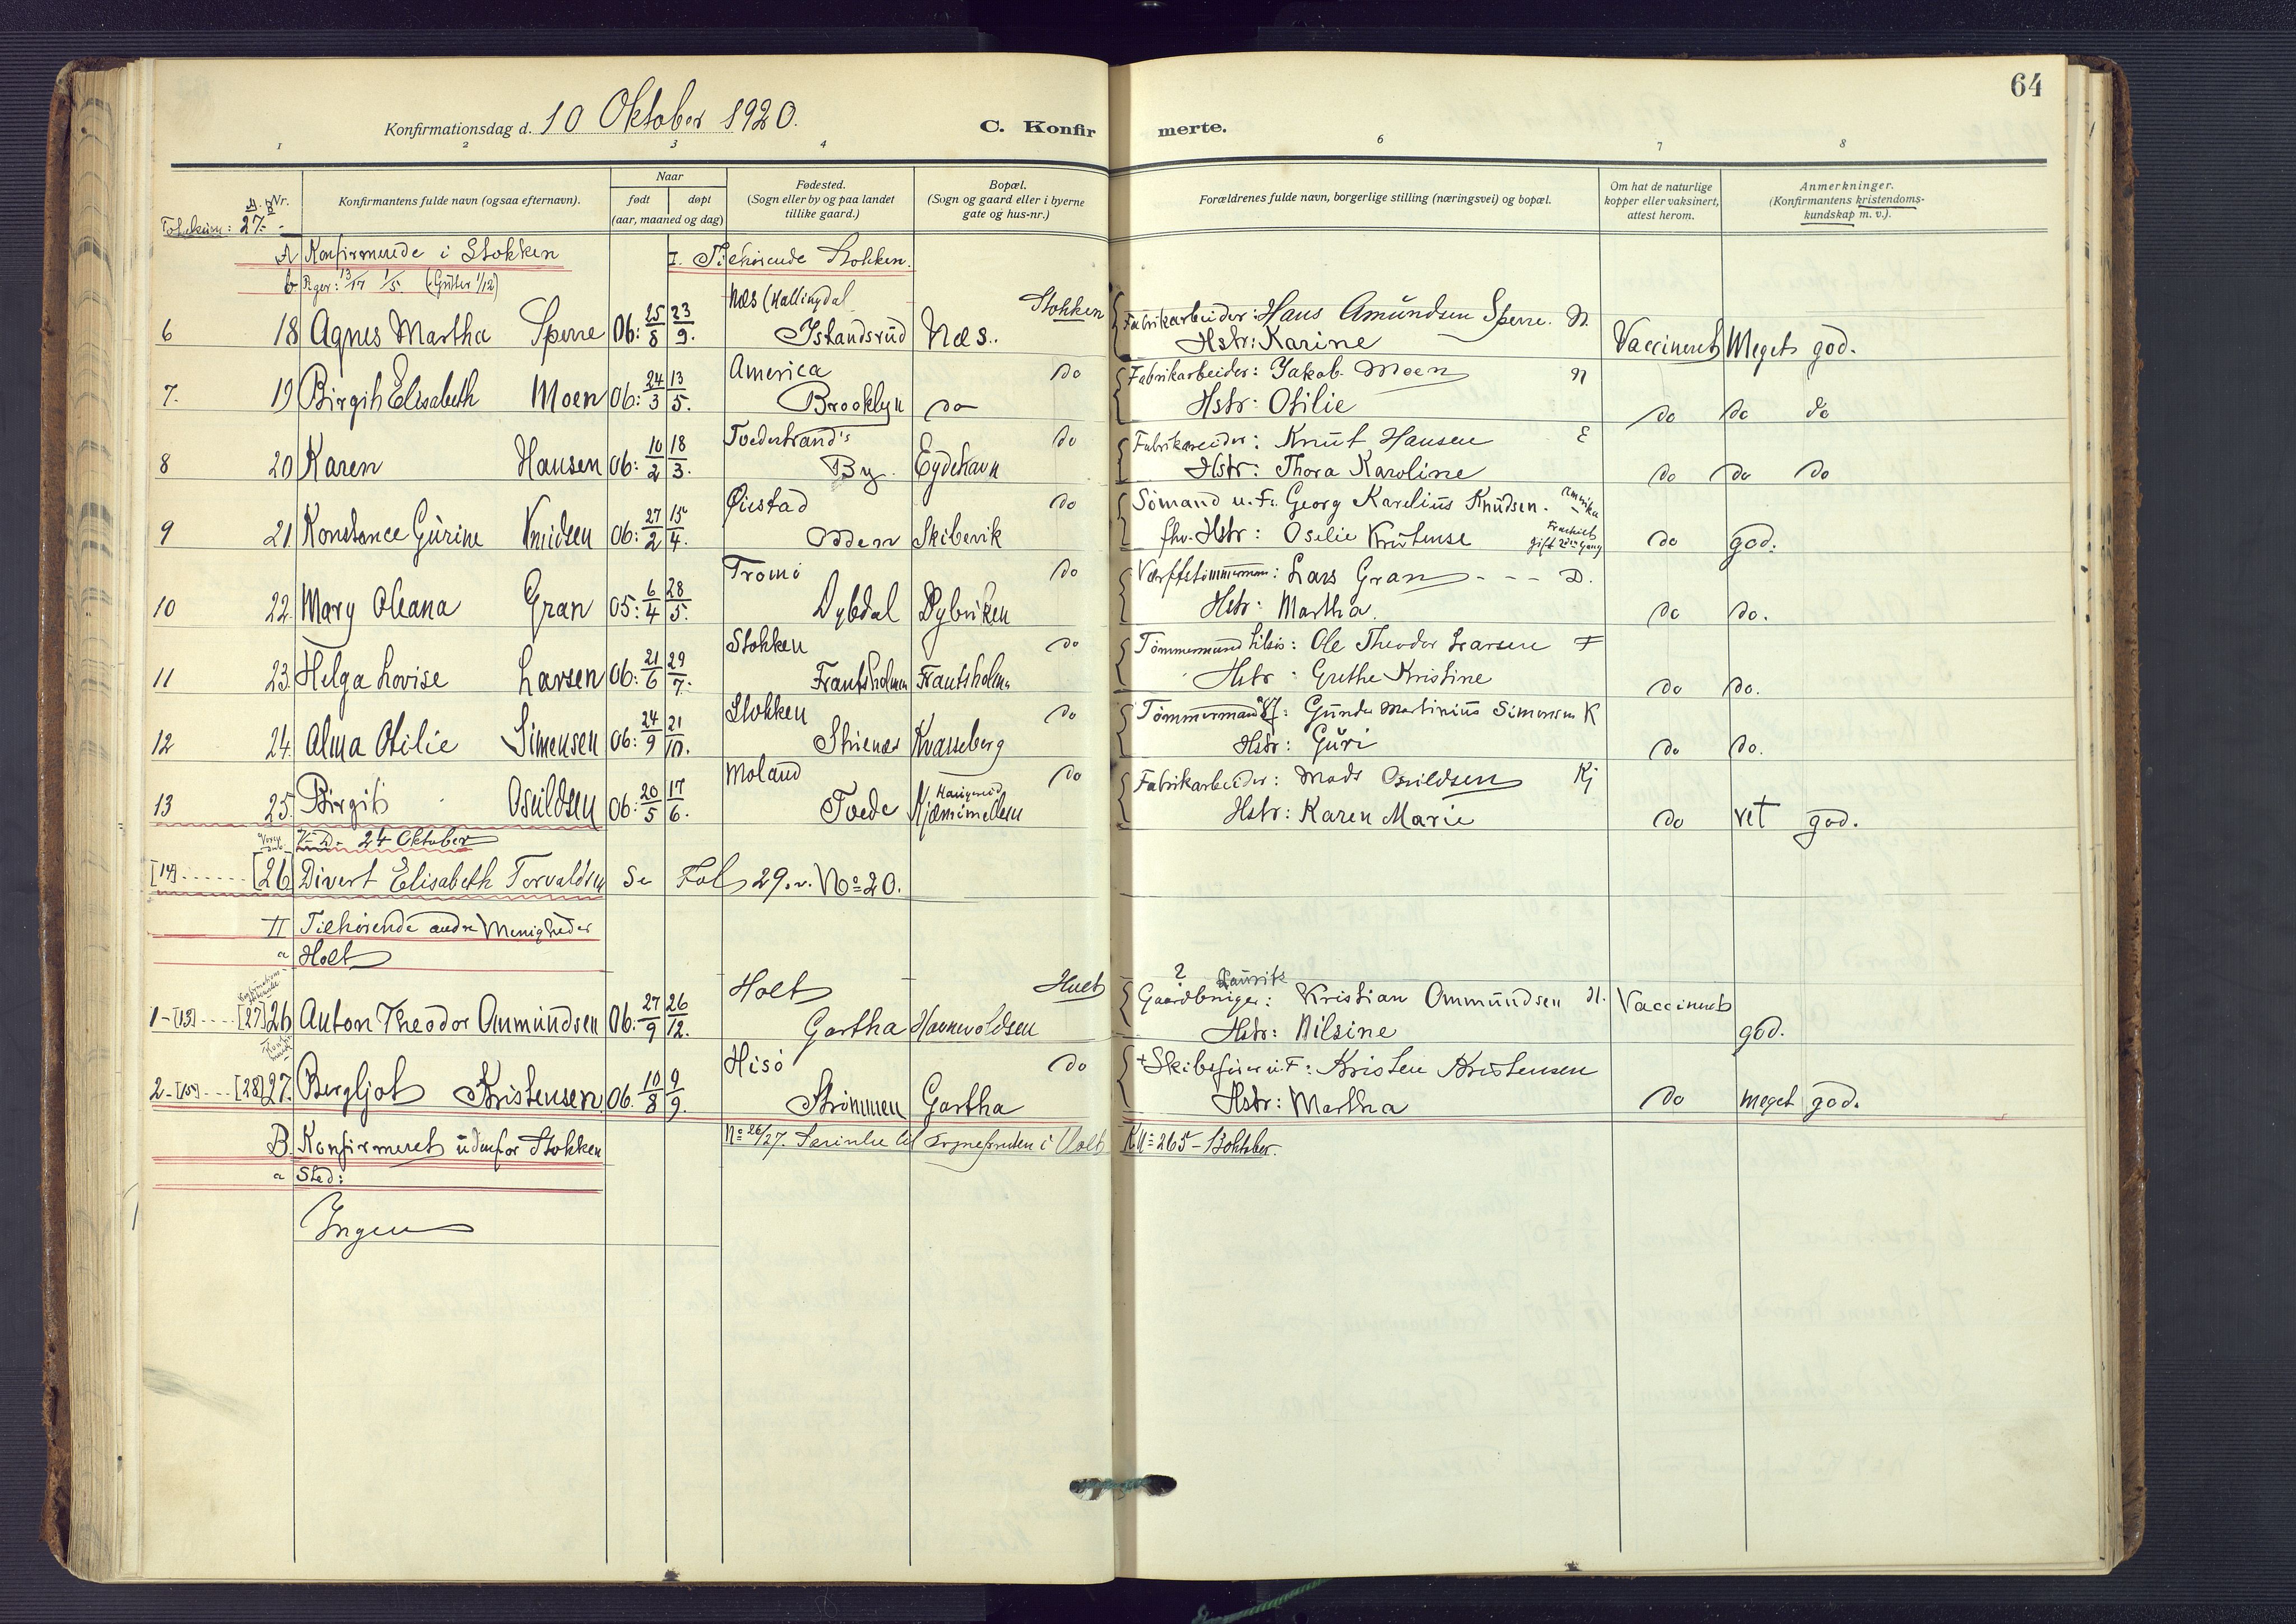 64
Konfirmationsdag d. 10 Oktober 1920.
C. Konfir merte.
1 2 3 4 6 7 8
Nr. Konfirmantens fulde navn (ogsaa efternavn). Naar født døpt (aar, maaned og dag) Fødested. (Sogn eller by og paa landet tillike gaard.) Bopæl. (Sogn og gaard eller i byerne gate og hus-nr.) Forældrenes fulde navn, borgerlige stilling (næringsvei) og bopæl. Om hat de naturlige kopper eller vaksinert, attest herom. Anmerkninger. (Konfirmantens kristendoms-kundskap m. v.).
27.
A Konfirmerede i Stokken I. Tilhørende Stokken.
b Piger: 13/17 1/5. (Gutter 1/12)
Næs (Hallingdal Stokken Fabrikarbeider: Hans Amundsen Sperre. N.
6 18 Agnes Martha Sperre 06: 25/8 23/9. Istandsrud Næs. Hstr: Karine Vaccineret Meget god.
America do Fabrikarbeider: Jakob Moen N
7. 19 Birgit Elisabeth Moen 06: 24/3 13/5. Brooklyn do Hstr: Otilie do do do
Tvedestrand's do Fabrikareider: Knut Hansen E
8 20 Karen Hansen 06: 10/2 18/3. By. Eydehavn Hstr: Thora Karoline do do do
Øiestad do Sømand u. F: Georg Karelius Knudsen. Amerika
9 21. Konstance Gurine Knudsen 06: 27/2 15/4. Odden Skibevik fhv. Hstr: Oselie Krutense do god.
Tromø do Værftstømmermm: Lars Gran - - - D.
10 22. Mary Oleana Gran 05: 6/4 28/5. Dybdal Dybviken Hstr: Martha. do do.
Stokken do Tømmermand tilsøs: Ole Theodor Larsen F
11 23. Helga Lovise Larsen 06: 21/6 29/7. Frantsholmen Frantsholmn Hstr: Grethe Kristine do do.
Stokken do Tømmermand: Gunder Martinius Simensen K
12 24. Alma Otilie Simensen 06: 24/9 21/10. Skienes Kvasseberg Hstr: Guri do do.
Moland do Fabrikarbeider: Mads Osuldsen Kj
13 25. Birgit Osuldsen 06: 20/5 17/6. Tvede Hstr: Karen Marie do ret god.
24 Oktober
[14] [26 Divert Elisabeth Torvaldsen Se Fol 29. v. No 20.
II Tilhørende andre Menigheder
a Holt
Holt Holt ? Laurits Gaardbruger: Kristian Ommundsen H. Vaccineret
1 - [13] [27] 26 Anton Theodor Ommundsen 06: 27/9 26/12. Gartha Havnevoldsen Hstr: Nilsine god.
Hisø do + Skibsfører u. F: Kristen Kristensen
2 - [15] [28] 27. Bergljot Kristensen 06. 10/8 9/9. Strømmen Gartha Hstr: Martha do meget god.
B. Konfirmeret udenfor Stokken No 26/27. til Sognepresten i Holt KN: 265 - 13 oktober.
a Sted:
Ingen